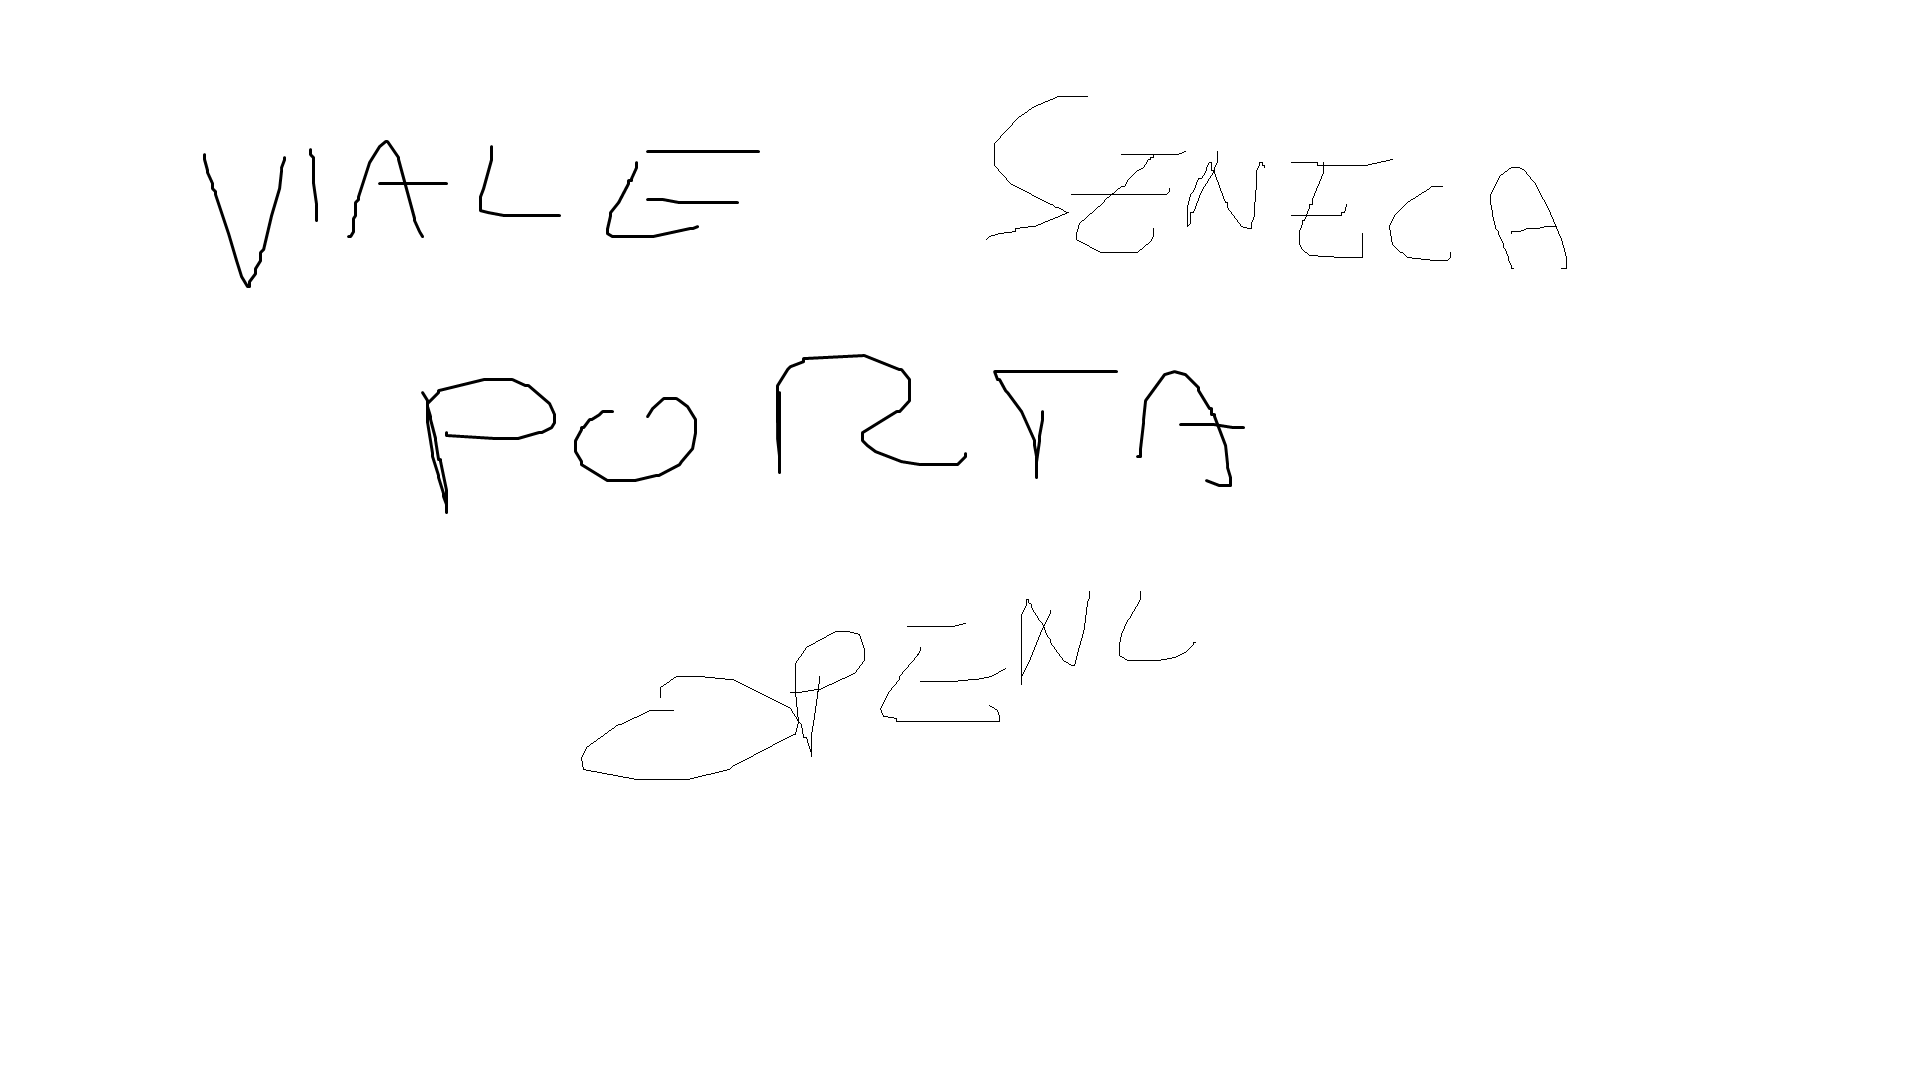 VIALE SENECA
PORTA
OPENC